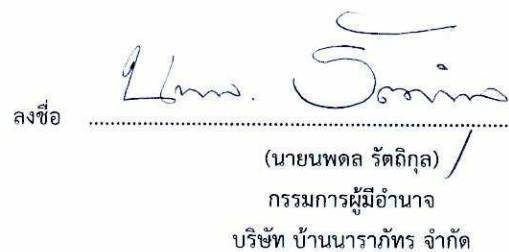 ลงชื่อ ........................................................
(นายนพดล รัตถิกุล)
กรรมการผู้มีอำนาจ
บริษัท บ้านนาราภัทร จำกัด